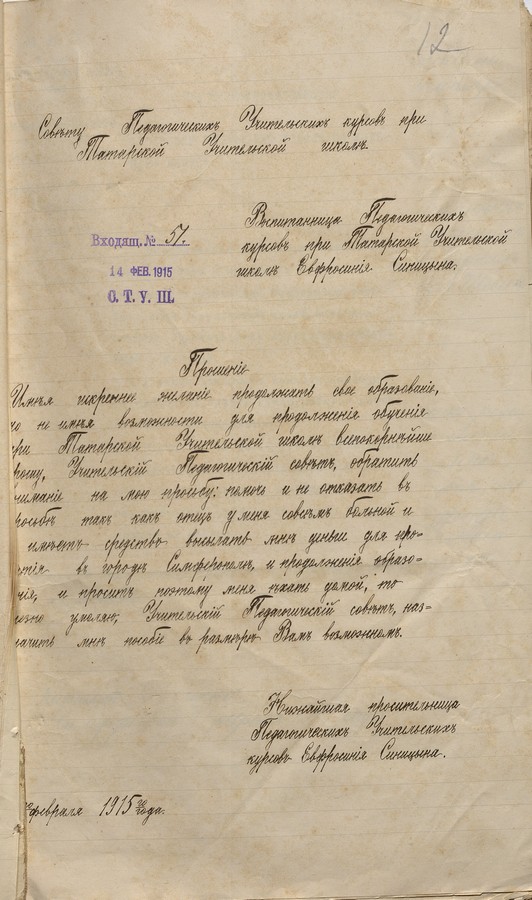 12
Совѣту Педагогическихъ Учительскихъ курсовъ при
Татарской Учительской школѣ.
Воспитанница Педагогическихъ
курсовъ при Татарской Учительской
школѣ Евфросинія Синицына.
Входящ. № 51.
14 ФЕВ. 1915
С. Т. У. Ш.
Прошеніе
Имѣя искреннее желаніе продолжать свое образованіе,
но не имѣя возможности для продолженія обученія
при Татарской Учительской школѣ всепокорнѣйше
рошу, Учительскій Педагогическій совѣтъ, обратить
ниманіе на мою просьбу: помочь и не отказать въ
росьбѣ такъ какъ отецъ у меня совсѣмъ больной и
имѣетъ средство высылать мнѣ деньги для про-
тія въ городѣ Симферополѣ, и продолженія образо-
нія, и проситъ поэтому меня ѣхать домой, то
езно умоляю, Учительскій Педагогическій совѣтъ, наз-
начить мнѣ пособіе въ размѣрѣ Вамъ возможномъ.
Нижайшая просительница
Педагогическихъ Учительскихъ
курсовъ Евфросинія Синицына.
Февраля 1915 Года.